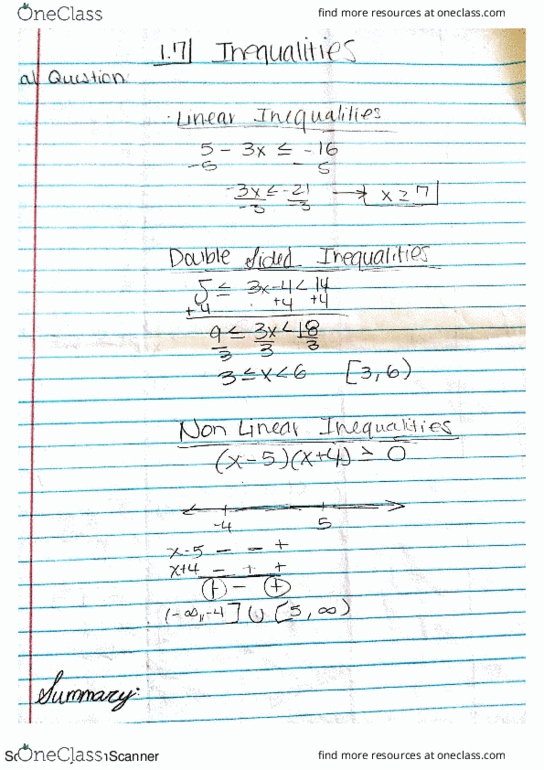 OneClass find more resources at oneclass.com
1.7 Inequalities
al Question
Linear Inequalities
5 - 3x ≤ -16
-5 -5
-3x ≤ -21 → x ≥ 7
-3 -3
Double Sided Inequalities
5 ≤ 3x-4 < 14
+4 +4 +4
9 ≤ 3x < 18
3 3 3
3 ≤ x < 6 [3,6)
Non Linear Inequalities
(x-5)(x+4) ≥ 0
-4 5
x-5 - - +
x+4 - + +
+ - +
(-∞,-4] ∪ [5,∞)
Summary:
OneClass Scanner
find more resources at oneclass.com